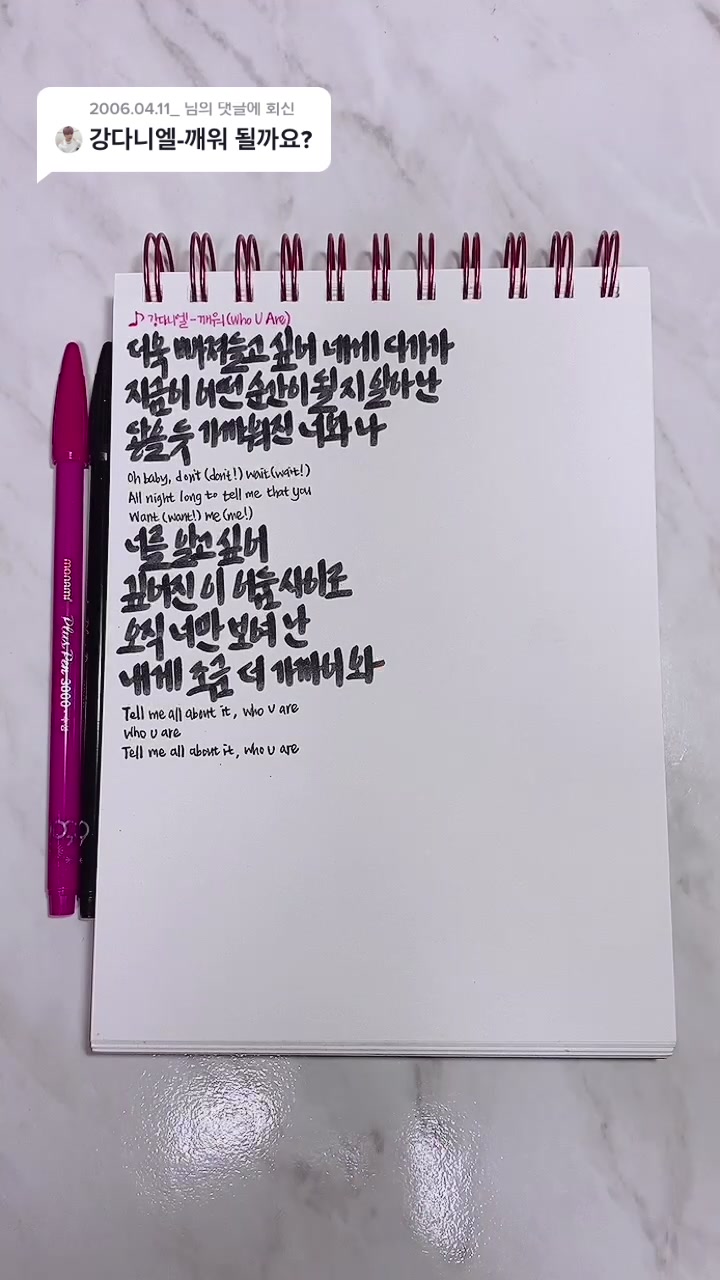 2006.04.11_ 님의 댓글에 회신
강다니엘-깨워 될까요?
♪ 강다니엘-깨워(Who U Are)
더욱 빠져들고 싶어 네게 다가가
지금이 어떤 순간이 될 지 알아 난
닿을 듯 가까워진 너와 나
Oh baby, don't (don't!) wait (wait!)
All night long to tell me that you
Want (want!) me (me!)
너를 알고 싶어
깊어진 이 어둠 사이로
오직 너만 보여 난
내게 조금 더 가까이 와
Tell me all about it, who U are
Who U are
Tell me all about it, who U are
monami Plus Pen 3000